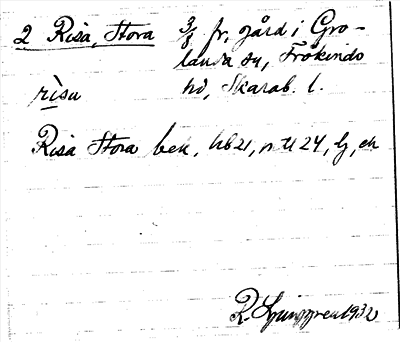 2 Risa, Stora 3/8 fr, gård i Gro-
landa sn, Frökinds
rìsu hd, Skarab. l.
Risa Stora bek, hb21, n tl 24, lj, ek
R Ljunggren 1932